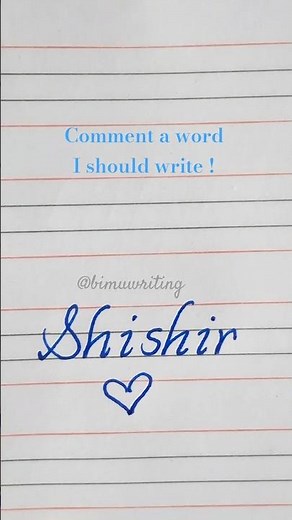 Comment a word
I should write !
@bimuwriting
Shishir